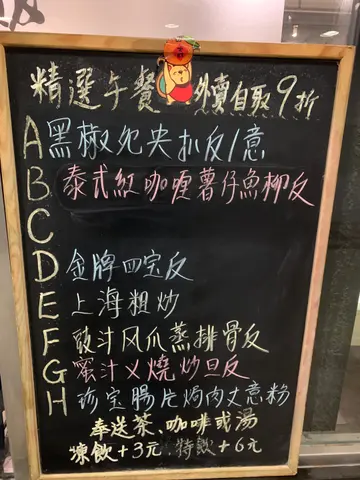 精選午餐 外賣自取9折
A 黑椒死央扒反/意
B 泰式紅咖喱薯仔魚柳反
C
D 金牌四宝反
E 上海粗炒
F 豉汁风爪蒸排骨反
G 蜜汁乂燒炒旦反
H 珍宝腸片焗肉丈意粉
奉送茶、咖啡或湯
凍飲+3元 特飲+6元